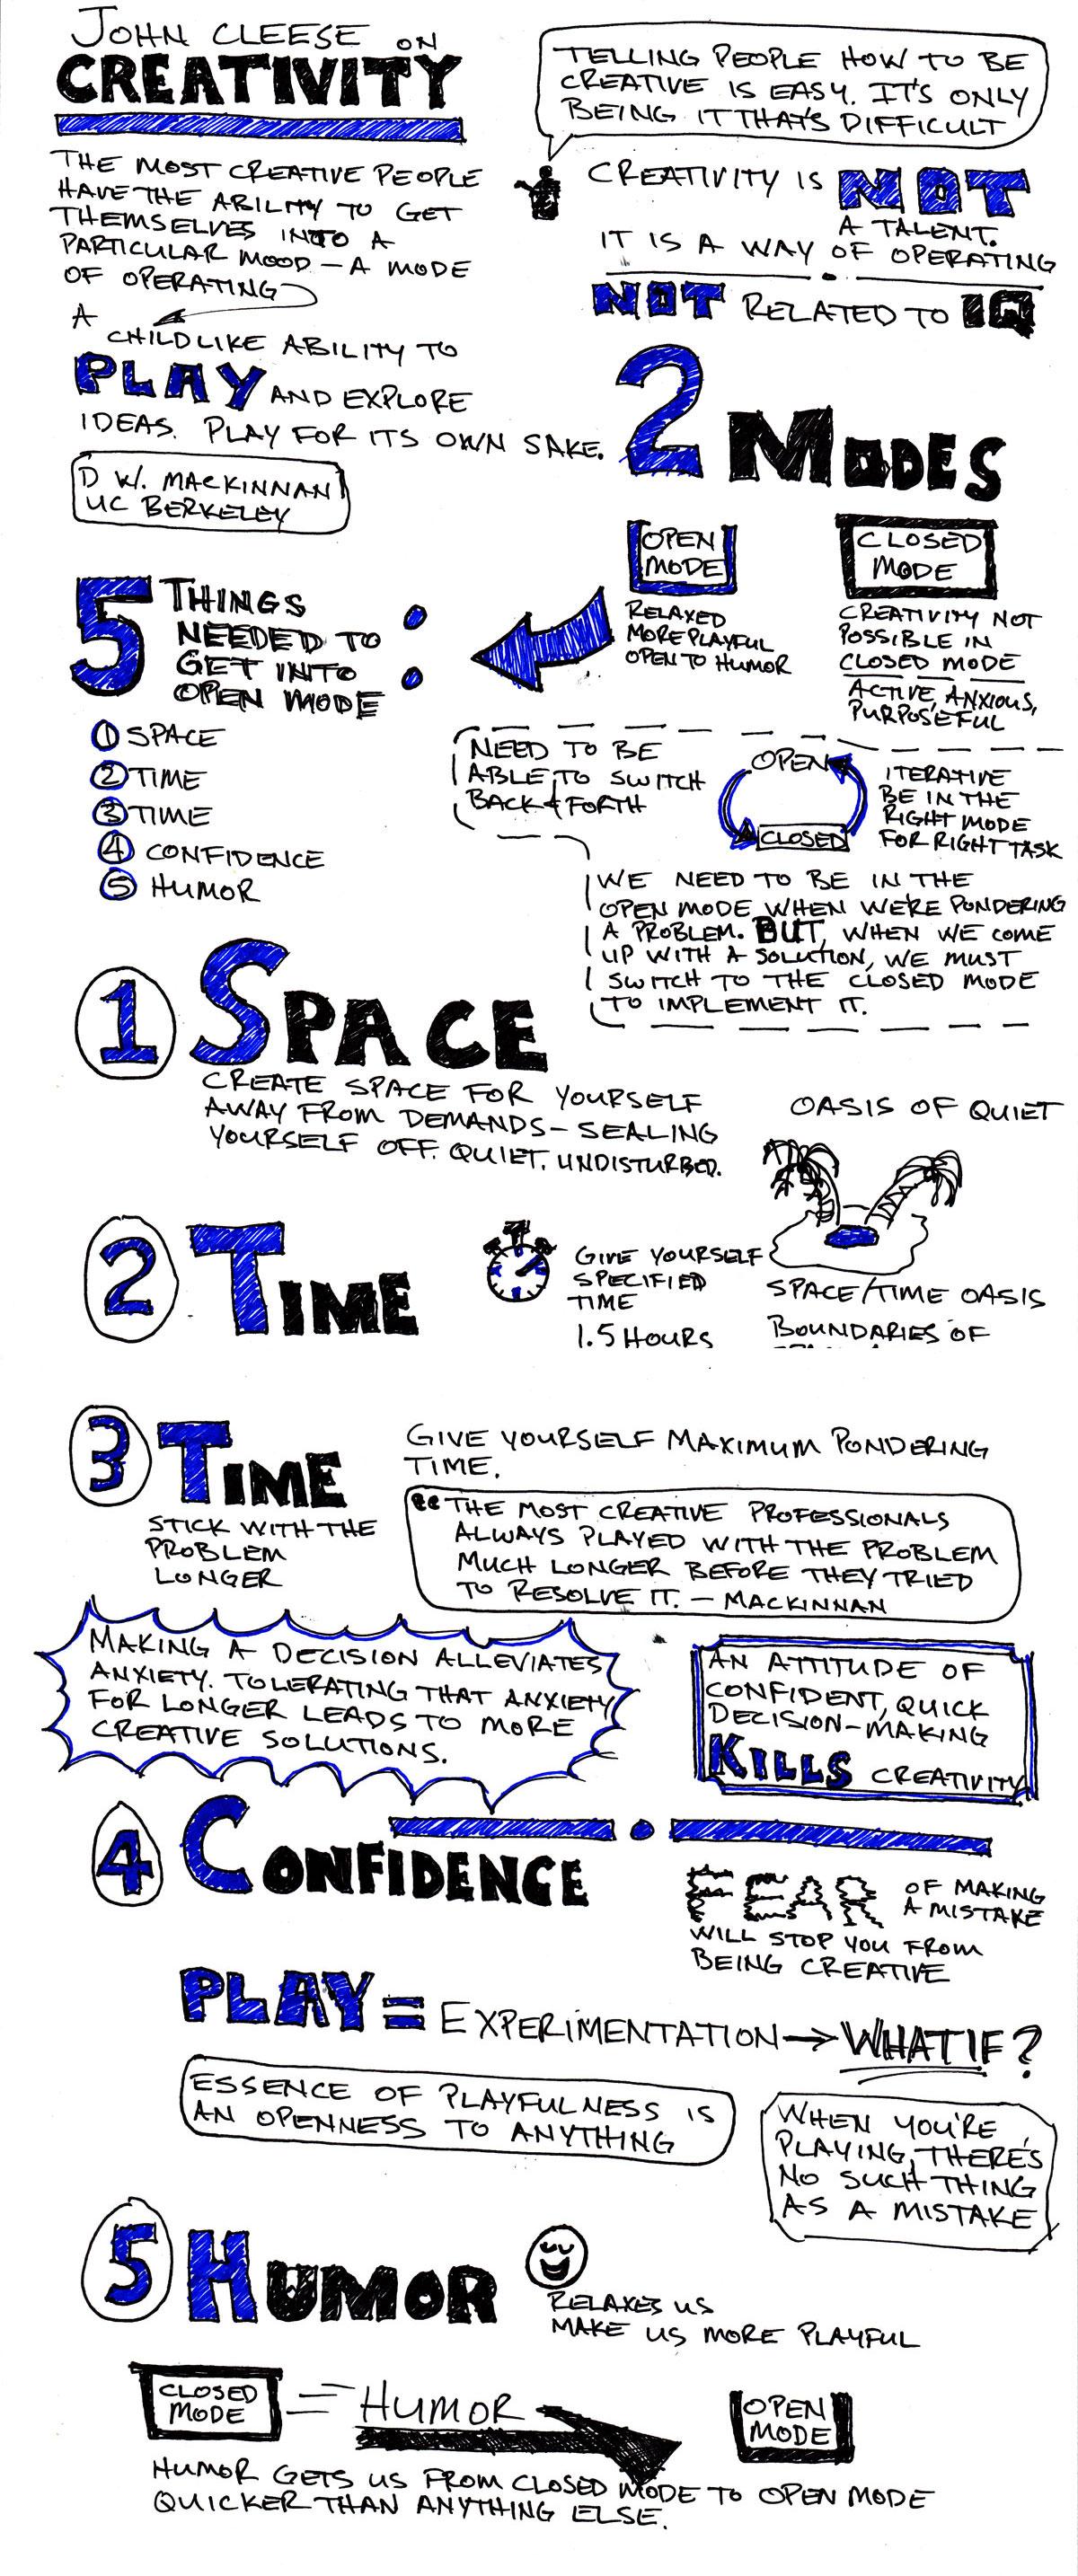 JOHN CLEESE ON
CREATIVITY
TELLING PEOPLE HOW TO BE
CREATIVE IS EASY. IT'S ONLY
BEING IT THAT'S DIFFICULT
THE MOST CREATIVE PEOPLE
HAVE THE ABILITY TO GET
THEMSELVES INTO A
PARTICULAR MOOD – A MODE
OF OPERATING
A
CHILDLIKE ABILITY TO
PLAY AND EXPLORE
IDEAS. PLAY FOR ITS OWN SAKE.
D W. MACKINNAN
UC BERKELEY
CREATIVITY IS NOT
A TALENT.
IT IS A WAY OF OPERATING
NOT RELATED TO IQ
2 MODES
OPEN
MODE
RELAXED
MORE PLAYFUL
OPEN TO HUMOR
CLOSED
MODE
CREATIVITY NOT
POSSIBLE IN
CLOSED MODE
ACTIVE, ANXIOUS,
PURPOSEFUL
5 THINGS
NEEDED TO
GET INTO
OPEN MODE :
1 SPACE
2 TIME
3 TIME
4 CONFIDENCE
5 HUMOR
NEED TO BE
ABLE TO SWITCH
BACK & FORTH
OPEN
CLOSED
ITERATIVE
BE IN THE
RIGHT MODE
FOR RIGHT TASK
WE NEED TO BE IN THE
OPEN MODE WHEN WE'RE PONDERING
A PROBLEM. BUT, WHEN WE COME
UP WITH A SOLUTION, WE MUST
SWITCH TO THE CLOSED MODE
TO IMPLEMENT IT.
1 SPACE
CREATE SPACE FOR YOURSELF
AWAY FROM DEMANDS – SEALING
YOURSELF OFF. QUIET. UNDISTURBED.
OASIS OF QUIET
2 TIME
GIVE YOURSELF
SPECIFIED
TIME
1.5 HOURS
SPACE/TIME OASIS
BOUNDARIES OF
3 TIME
STICK WITH THE
PROBLEM
LONGER
GIVE YOURSELF MAXIMUM PONDERING
TIME.
“THE MOST CREATIVE PROFESSIONALS
ALWAYS PLAYED WITH THE PROBLEM
MUCH LONGER BEFORE THEY TRIED
TO RESOLVE IT. – MACKINNAN
MAKING A DECISION ALLEVIATES
ANXIETY. TOLERATING THAT ANXIETY
FOR LONGER LEADS TO MORE
CREATIVE SOLUTIONS.
AN ATTITUDE OF
CONFIDENT, QUICK
DECISION-MAKING
KILLS CREATIVITY
4 CONFIDENCE
FEAR OF MAKING
A MISTAKE
WILL STOP YOU FROM
BEING CREATIVE
PLAY = EXPERIMENTATION → WHAT IF?
ESSENCE OF PLAYFULNESS IS
AN OPENNESS TO ANYTHING
WHEN YOU'RE
PLAYING, THERE'S
NO SUCH THING
AS A MISTAKE
5 HUMOR
RELAXES US
MAKE US MORE PLAYFUL
CLOSED
MODE
= HUMOR
OPEN
MODE
HUMOR GETS US FROM CLOSED MODE TO OPEN MODE
QUICKER THAN ANYTHING ELSE.